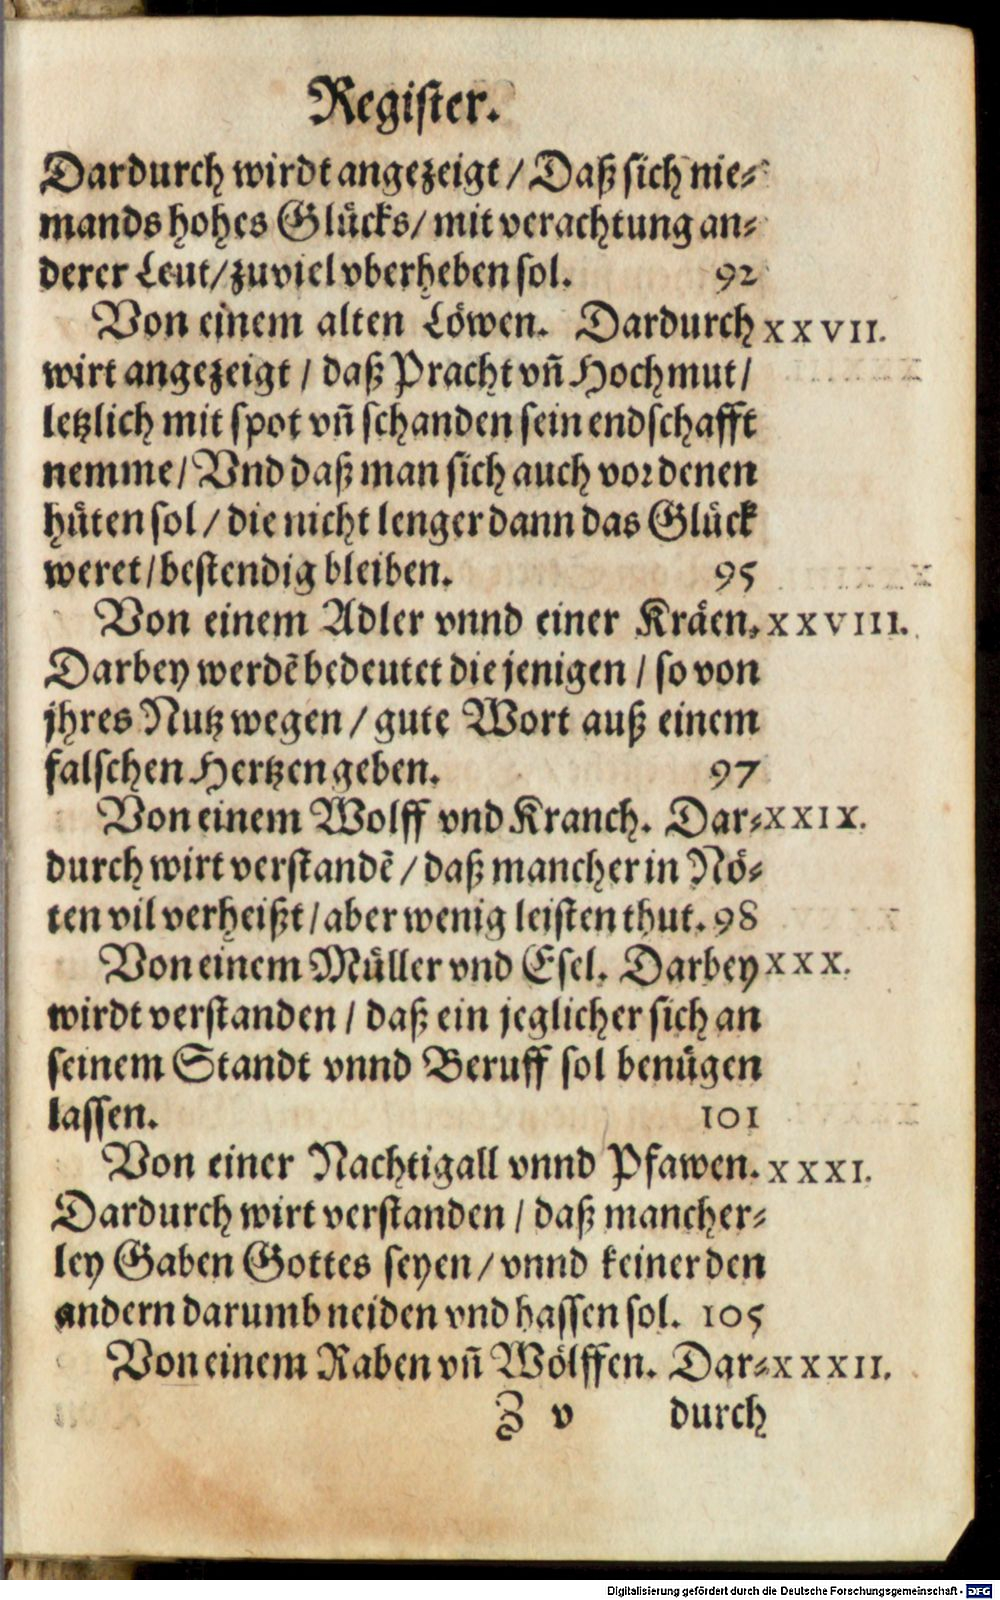 Register.
Dardurch wirdt angezeigt / Daß sich nie⸗
mands hohes Glücks / mit verachtung an⸗
derer Leut / zuviel vberheben sol. 92
Von einem alten Löwen. Dardurch XXVII.
wirt angezeigt / daß Pracht vñ Hochmut /
letzlich mit spot vñ schanden sein endschafft
nemme / Vnd daß man sich auch vor denen
hüten sol / die nicht lenger dann das Glück
weret / bestendig bleiben. 95
Von einem Adler vnnd einer Kräen. XXVIII.
Darbey werdẽ bedeutet die jenigen / so von
jhres Nutz wegen / gute Wort auß einem
falschen Hertzen geben. 97
Von einem Wolff vnd Kranch. Dar⸗ XXIX.
durch wirt verstandẽ / daß mancher in Nö⸗
ten vil verheißt / aber wenig leisten thut. 98
Von einem Müller vnd Esel. Darbey XXX.
wirdt verstanden / daß ein jeglicher sich an
seinem Standt vnnd Beruff sol benügen
lassen. 101
Von einer Nachtigall vnnd Pfawen. XXXI.
Dardurch wirt verstanden / daß mancher⸗
ley Gaben Gottes seyen / vnnd keiner den
andern darumb neiden vnd hassen sol. 105
Von einem Raben vñ Wölffen. Dar⸗ XXXII.
Z v durch
Digitalisierung gefördert durch die Deutsche Forschungsgemeinschaft - DFG